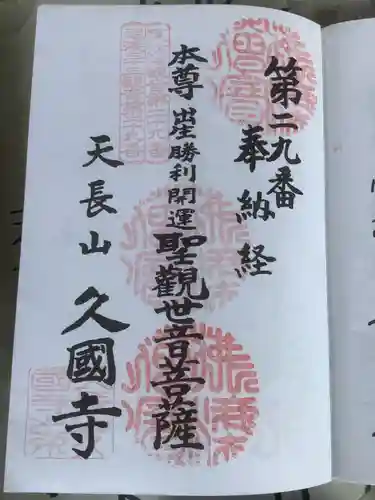 第二九番
奉納経
本尊出生勝利開運聖觀世音菩薩
天長山
久國寺